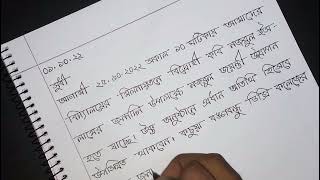 ০১.১০.২২
সুধী
আগামী ২৫.১০.২০২২ সকাল ১০ ঘটিকায় আমাদের
বিদ্যালয়ের মিলনায়তনে বিদ্রোহী কবি নজরুল ইস-
লামের জন্মদিন উপলক্ষে নজরুল জয়ন্তী উদযাপন
হতে যাচ্ছে। উক্ত অনুষ্ঠানে প্রধান অতিথি হিসেবে
উপস্থিত থাকবেন। কচুয়া বঙ্গবন্ধু ডিগ্রি কলেজের